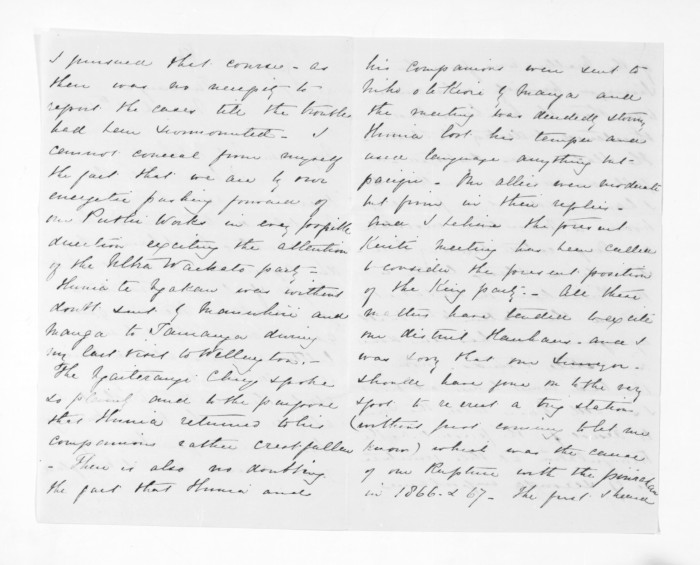 I pursued that course - as
there was no necessity to
report the cases till the troubles
had been surmounted - I
cannot conceal from myself
the fact that we are by our
energetic pushing forward of
our Public Works in every possible
direction exciting the attention
of the Ultra Waikato party -
Hunia te Ngakau was without
doubt sent by Manuhiri and
Manga to Tauranga during
my last visit to Wellington. -
The Ngaiterangi Chiefs spoke
so plainly and to the purpose
that Hunia returned to his
companions rather crestfallen
- There is also no doubting
the fact that Hunia and
his companions were sent to
by Manga and
the meeting was decidedly stormy
Hunia lost his temper and
used language anything but
pacific - Our allies were moderate
but firm in their replies -
and I believe the present
Kuiti meeting has been called
to consider the present position
of the King party. - All these
matters have tended to excite
our district Hauhaus - and I
was sorry that our Surveyor -
should have gone on to the very
spot to re-erect a trig station
(without first coming to let me
know) which was the cause
of our Rupture with the
in 1866 & 67 - The first I heard